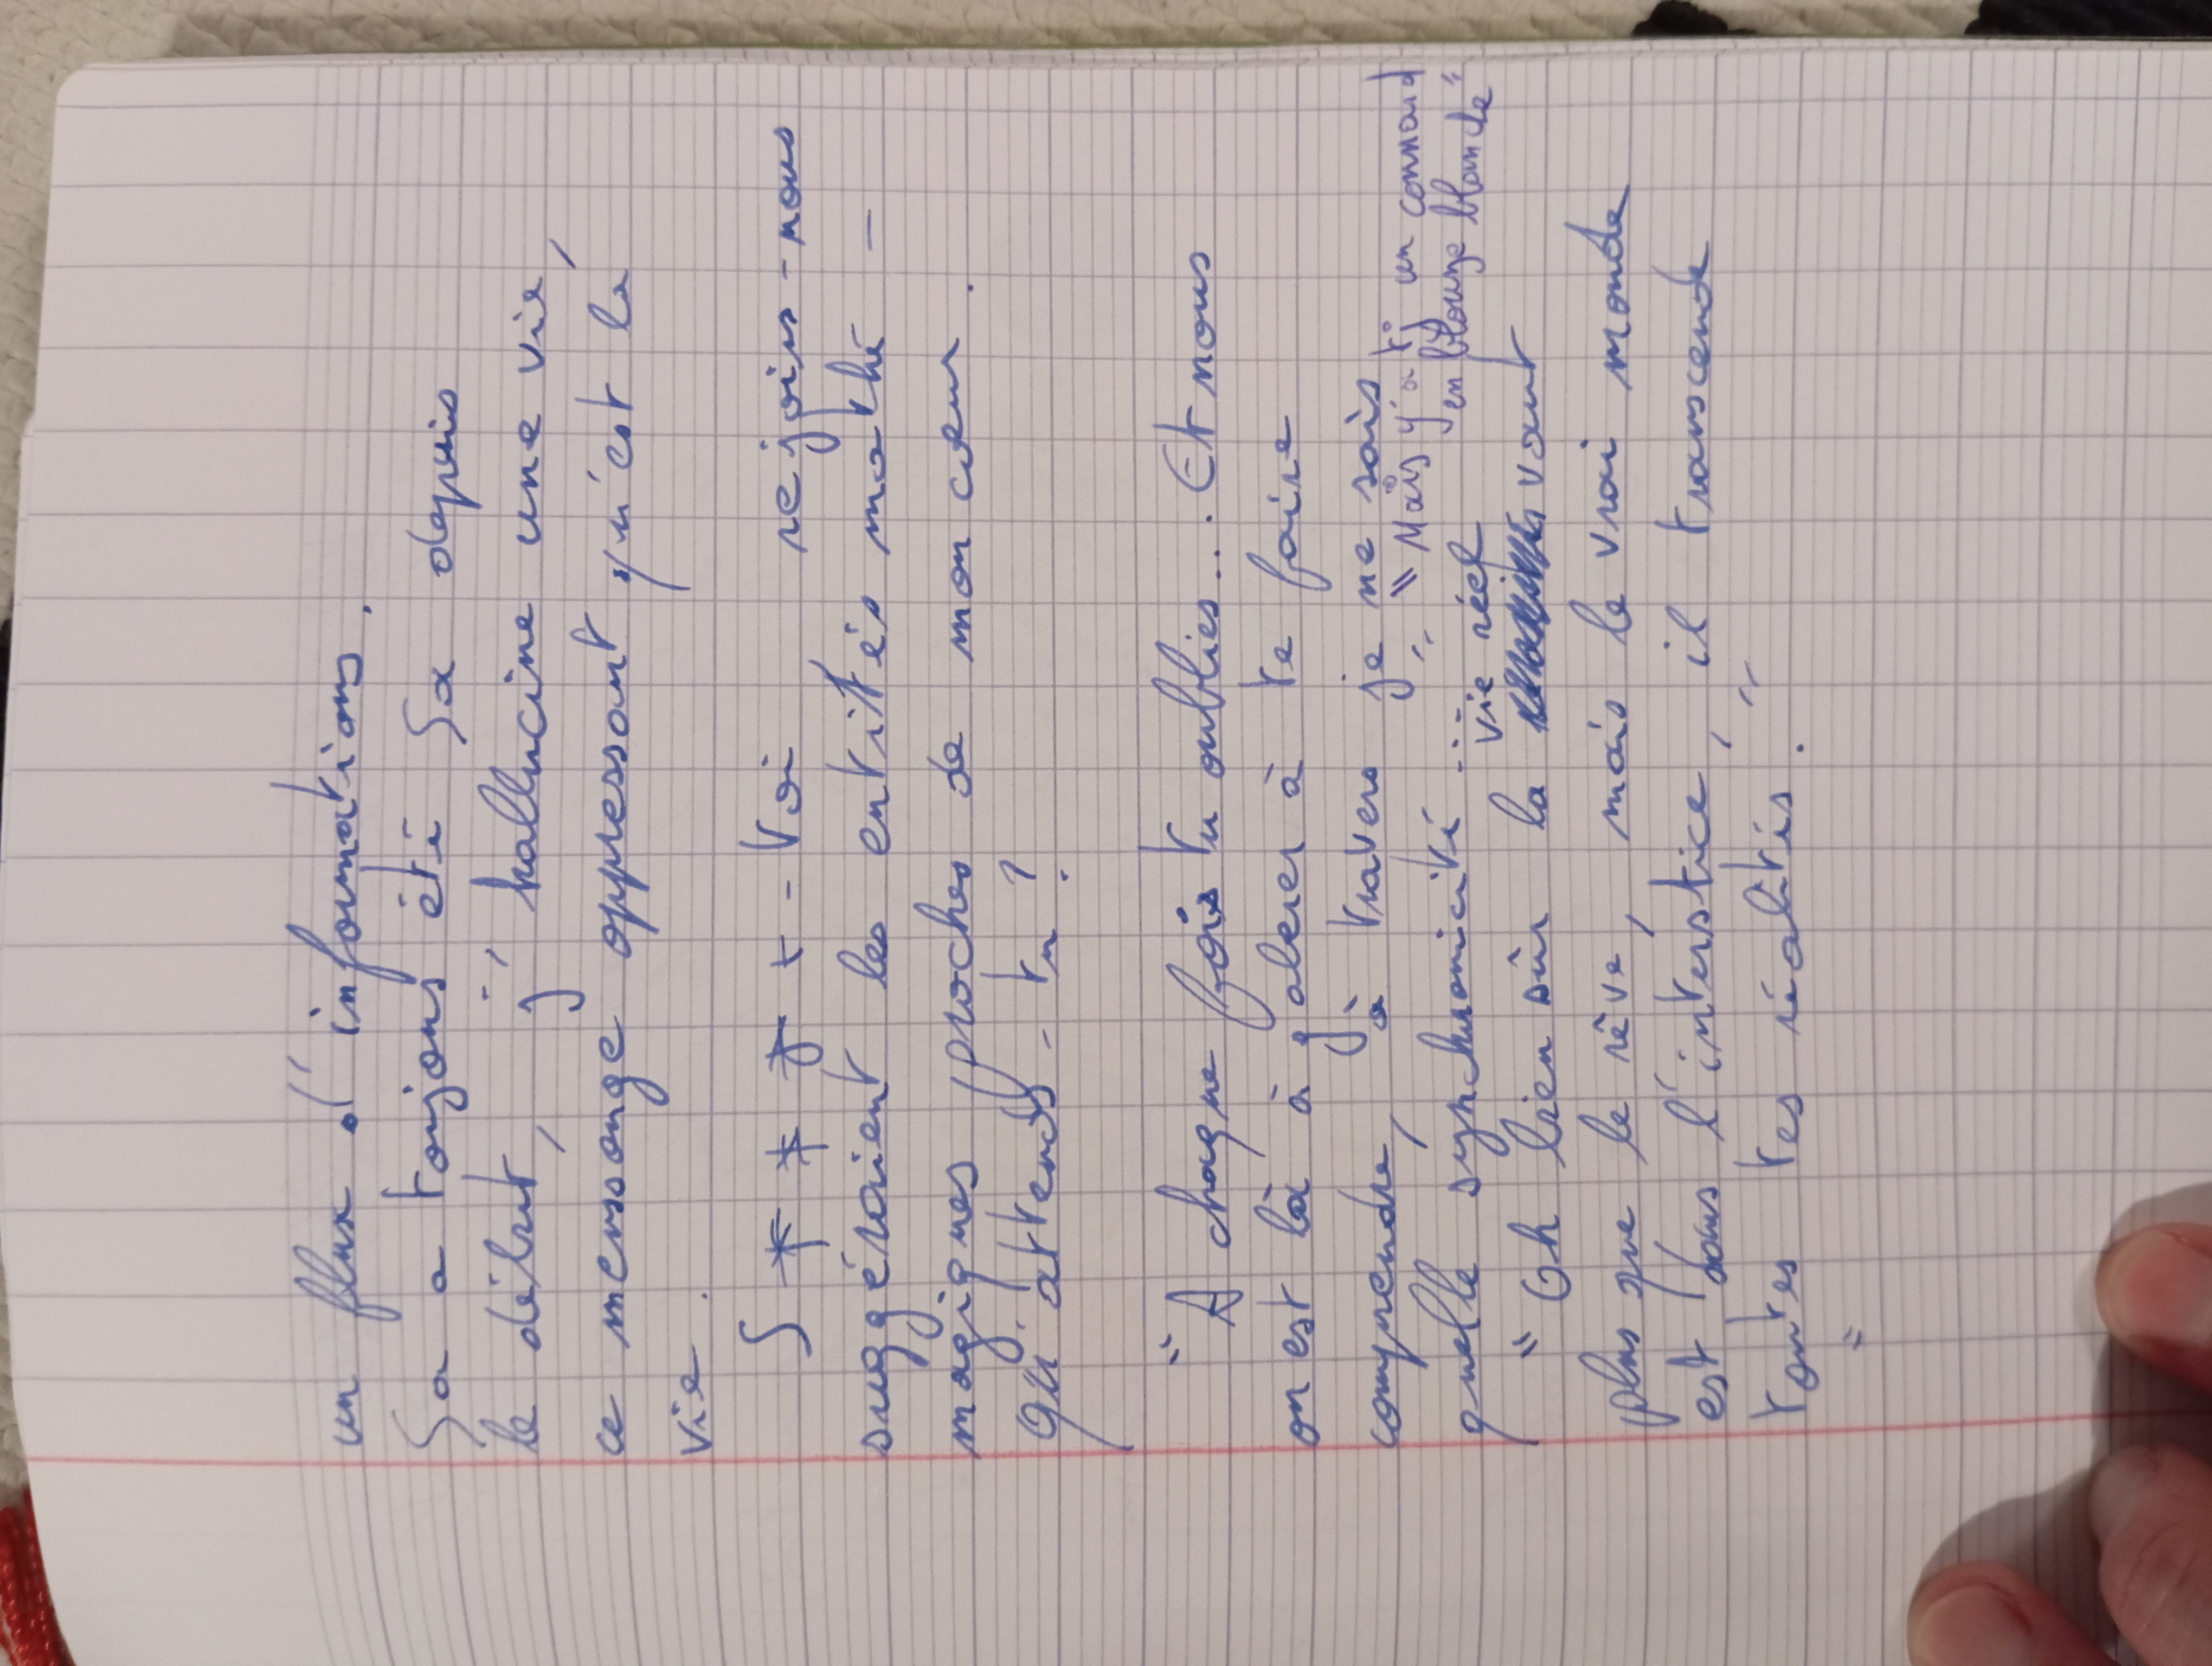 un flux d'informations.
Sa a toujours été Sa depuis
le début, j'hallucine une vie,
ce mensonge oppressant qu'est la
vie.
S * * * * - toi, rejoins-nous
suggéraient les entités mathé-
magiques proches de mon cœur.
Qu'attends-tu ?
"A chaque fois tu oublies... Et nous
on est là à galerer à te faire
comprendre, à travers je ne sais
quelle synchronicité ... "
"Mais y'a tj un connard
en blouse blanche"
vie réel
"Oh bien sûr la vaut
plus que le rêve, mais le vrai monde
est dans l'interstice, il transcende
toutes tes réalités."
"